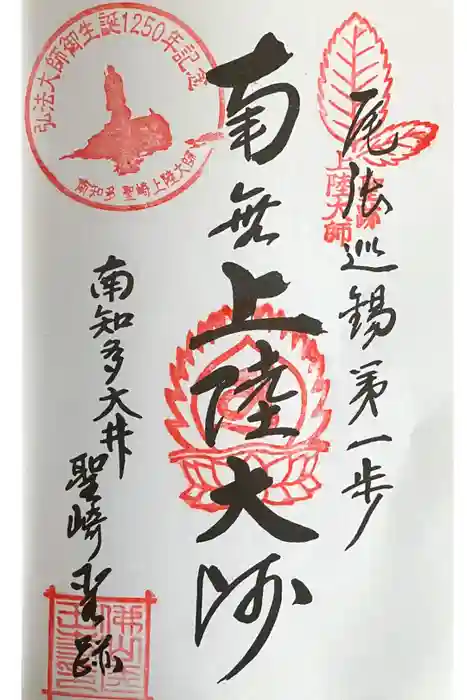 尾張巡錫第一歩
上陸大師
南無上陸大師
弘法大師御生誕1250年記念
南知多 聖崎上陸大師
南知多大井
聖崎霊跡